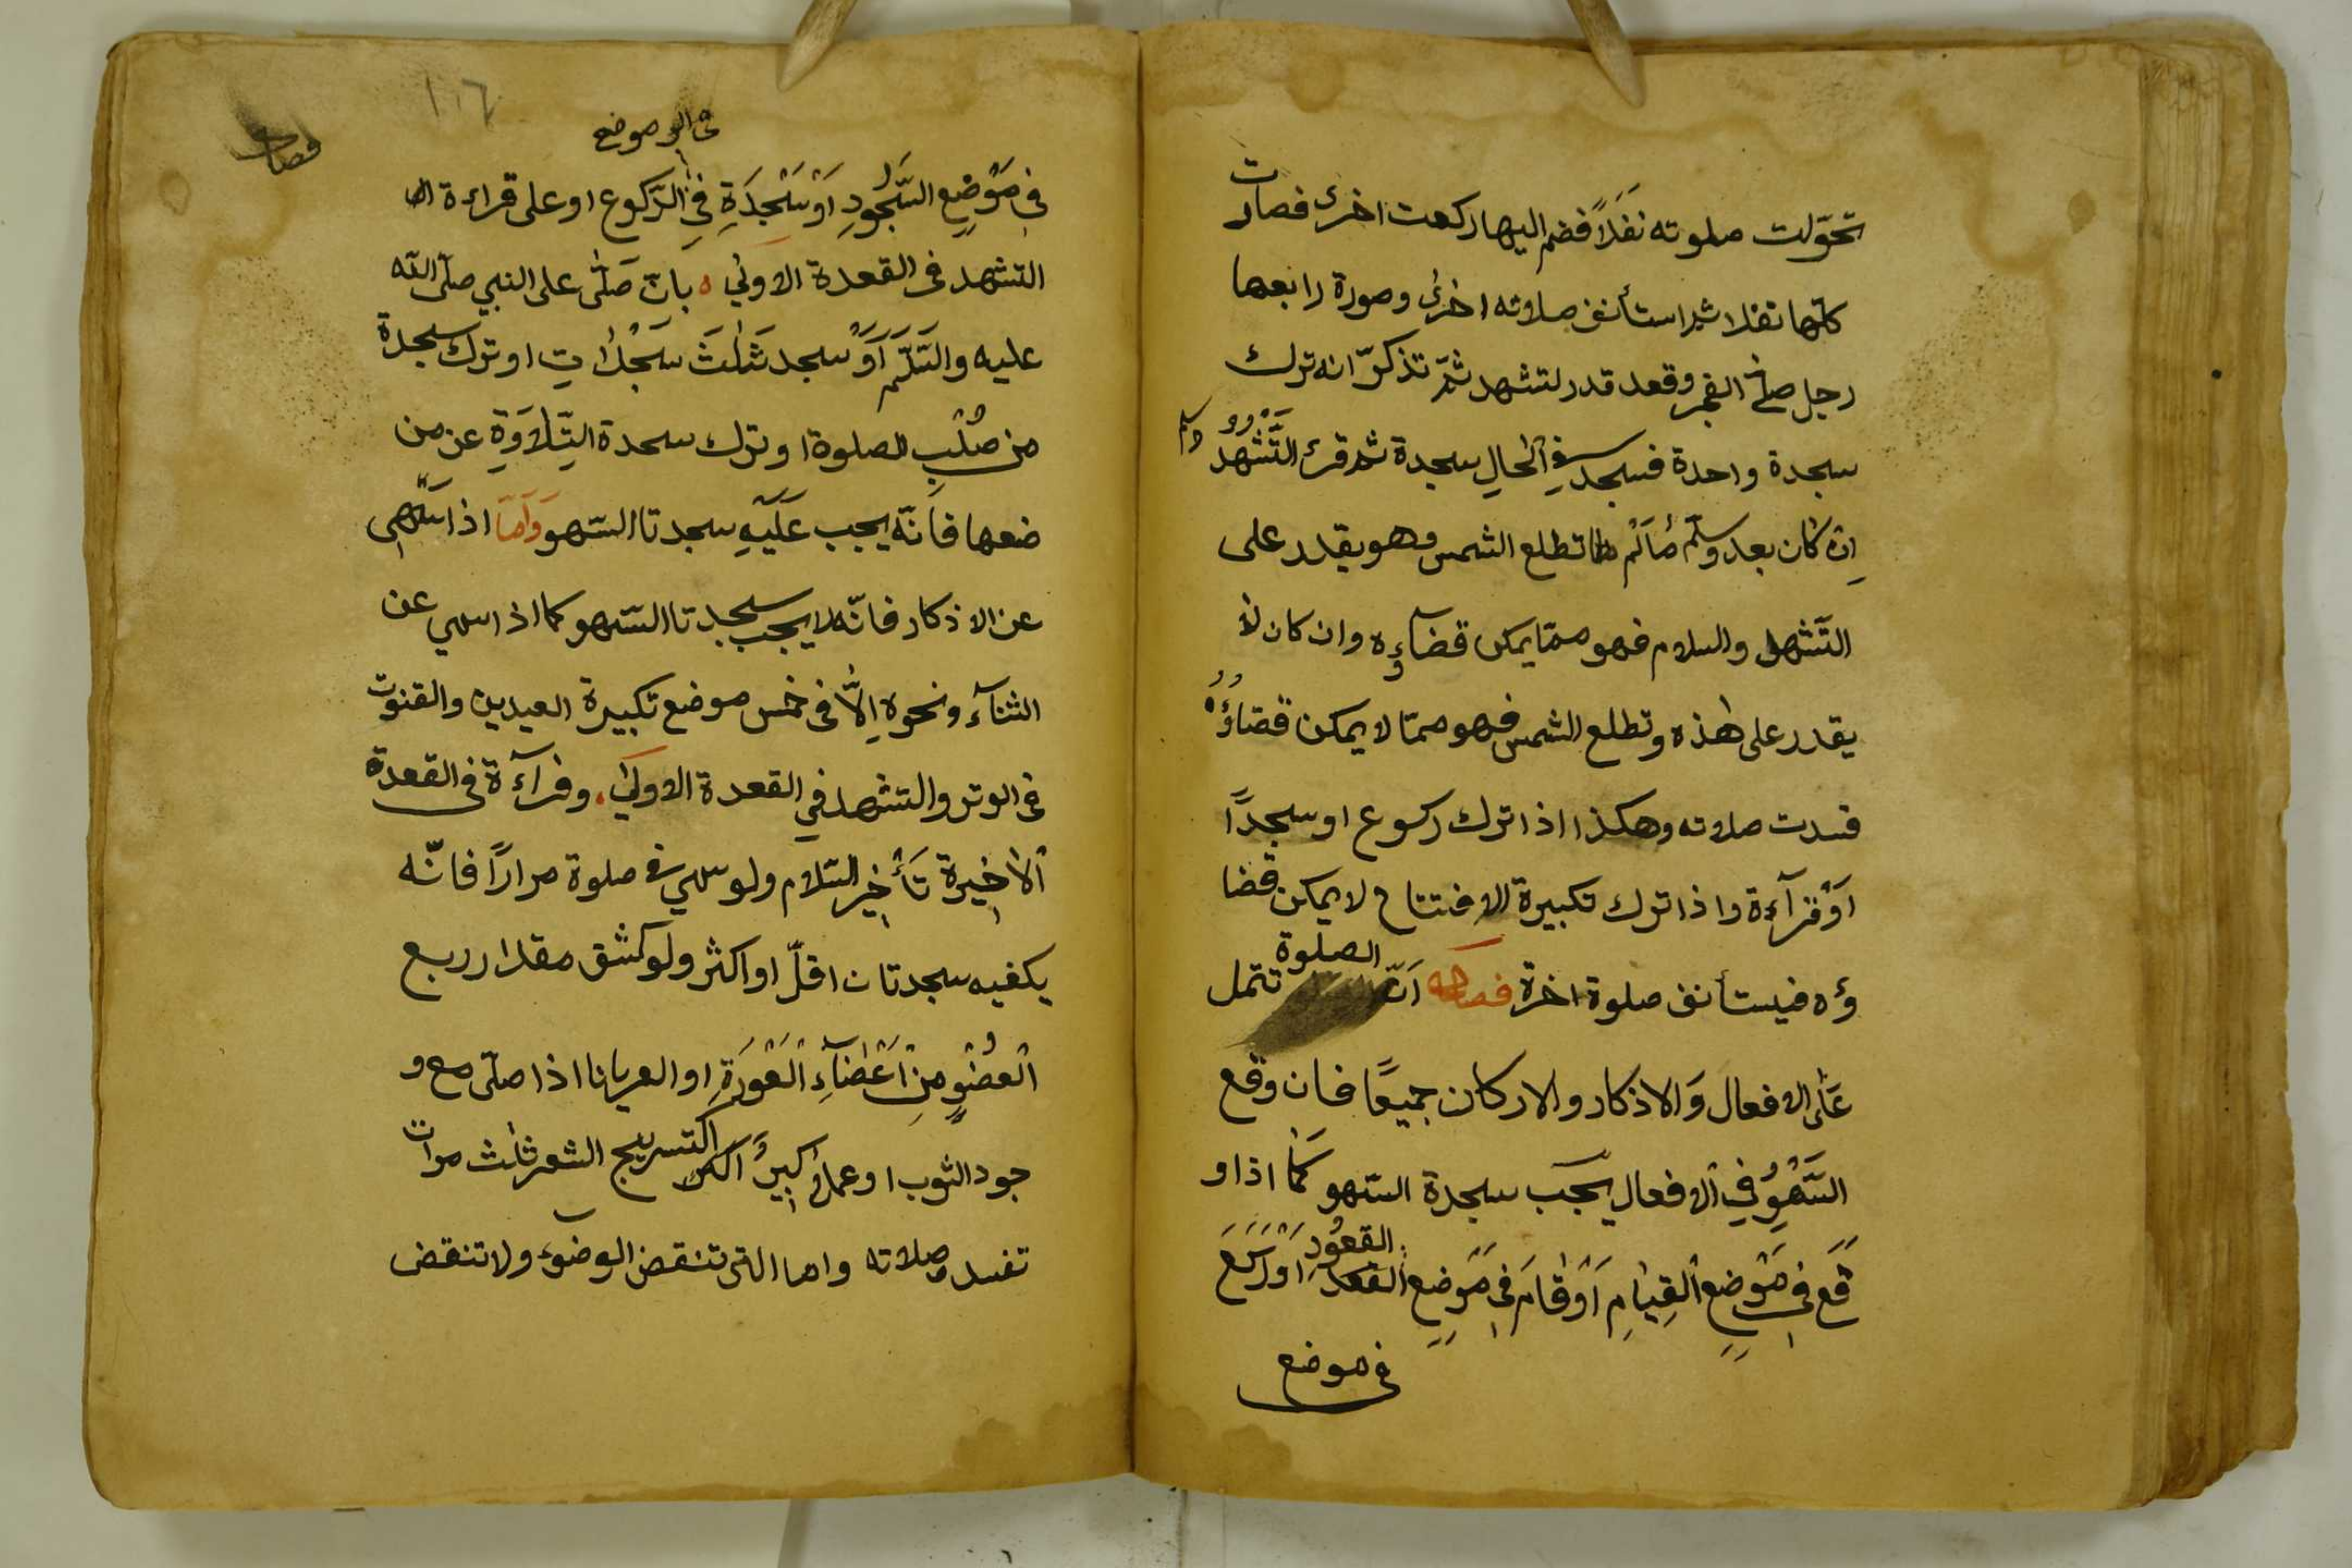 تحوّلت صلوته نَفَلاً فضم اليها ركعت اخرى فصارت
كلها نفلا ثم استأنف صلاته اخرى وصورة رابعها
رجل صلى الفجر وقعد قدر لتشهد ثمّ تذكّر انه ترك
سجدة واحدة فسجد في الحالِ سجدة ثم قرئ التَّشَهُّدُ وسلم
اِن كان بعد وسلّم مَا لَم تطلع الشمس وهو يقدر على
التَّشهد والسلام فهو ممّا يمكن قضآءِه وان كان لا
يقدر على هٰذه وتطلع الشمس فهو ممّا لا يمكن قضاؤُهُ
فسدت صلاته وهكذا اذا ترك ركوع او سجداً
اَوْ قرآءة واذا ترك تكبيرة الافتتاح لا يمكن قضا
ؤه فيستأنف صلوة اخرة فصل اَنّ الصلوة تشتمل
عَلى الافعال وَالاذكار والاركان جميعًا فان وقع
السَّهْوُ فِي الافعال يجب سجدة السّهو كَمَا اذا و
قَعَ فِى مَوْضِعِ القِيٰامِ اَوْ قَامَ فِى مَوْضِعِ القعُودِ اَوْ رَكَعَ
فى موضع
فى موضع
فِى مَوْضِعِ السُّجُودِ اَوْ سَجْدَةِ فِى الرّكوع او على قراءة
التشهد فى القعدة الاولىٰ بانّ صَلّٰى على النبي صلى الله
عليه والسّلّم اَوْ سجد ثَلٰثَ سَجْدٰاتِ او ترك سجدة
من صُلْبِ الصلوة او ترك سجدة التِّلٰاوَةِ عن من
ضعها فَاَنّه يجب عَلَيْهِ سجدتا السّهو وَاَمّا اذا سَهى
عن الاذكار فانّه لا يجب سجدتا السّهو كما اذا سهي عن
الثنآء ونحوه اِلاّٰ فى خمس موضع تكبيرة العيدين والقنوت
فى الوتر والتشهد في القعدة الاولىٰ وقرآءة فى القعدة
اْلاٰخِيرة تَأْخِير السّلام ولو سهي فى صلوة مرارًا فانّه
يكفيه سجدتان اقلّ او اكثر ولو كشف مقدار ربع
اْلعُضْوِ مِنْ اَعْضَآءِ اْلعَوْرَةِ او العريانا اذا صلّى مع و
جود الثوب او عملاً كبيرً التسريج الشعر ثلٰث مرات
تفسد صلاته واما التى تنقض الوضوء ولا تنقض